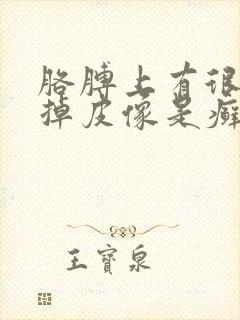 胳膊上有很
掉皮像是癣
王寶泉